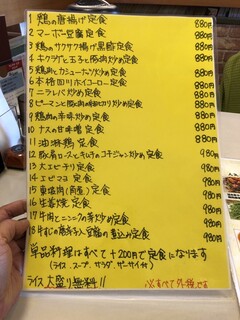 1 鶏の唐揚げ定食 880円
2 マーボー豆腐定食 880円
3 鶏のサクサク揚げ黒酢定食 880円
4 キクラゲと玉子と豚肉炒め定食 880円
5 鶏肉とカシューナッツ炒め定食 880円
6 本格四川ホイコーロー定食 880円
7 ニラレバ炒め定食 880円
8 ピーマンと豚肉の細切り炒め定食 880円
9 鶏肉の辛味炒め定食 880円
10 ナスの甘辛噌 定食 880円
11 油淋鶏 定食 880円
12 豚肩ロースとキムチのコチジャン炒め定食 980円
13 大エビチリ定食 980円
14 エビマヨ 定食 980円
15 東坡肉(角煮)定食 980円
16 生姜焼 定食 980円
17 牛肉とニンニクの芽炒め定食 980円
18 牛すじの煮込み定食 980円
単品料理はすべて+200円で定食になります
(ライス スープ サラダ ザーサイ付)
ライス 大盛り無料!!
※すべて外税です